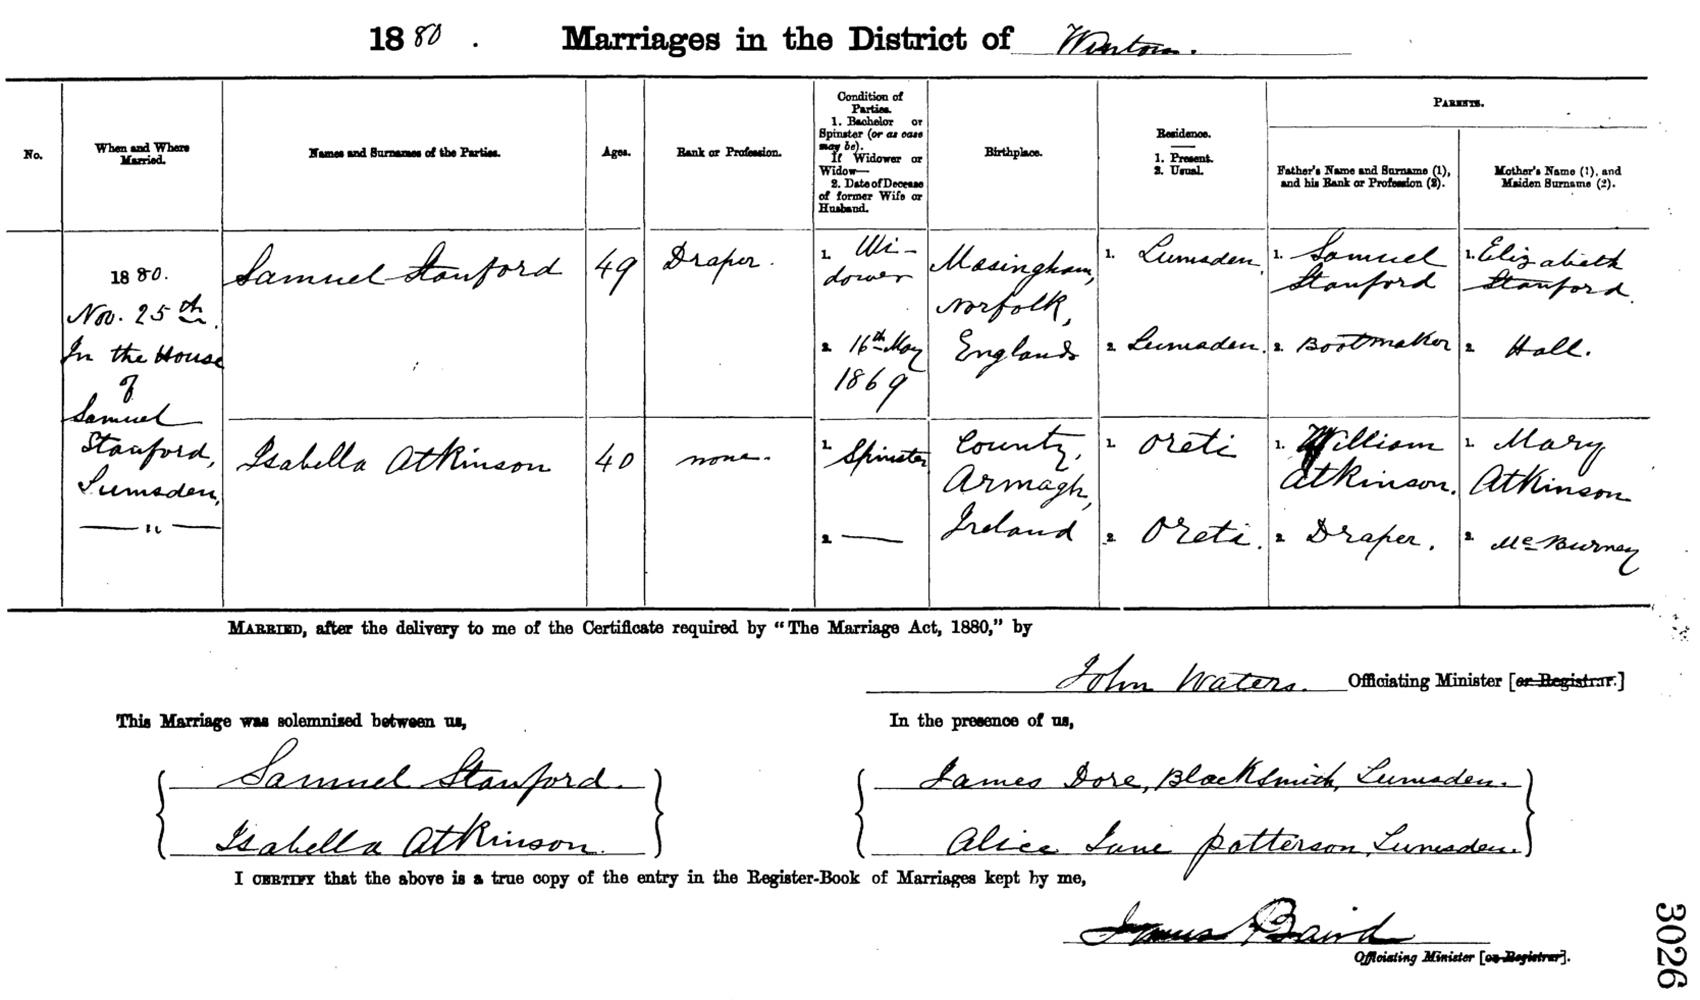 1880. Marriages in the District of Winton.
PARENTS.
No.
When and Where
Married.
Names and Surnames of the Parties.
Ages.
Rank or Profession.
Condition of
Parties.
1. Bachelor or
Spinster (or as case
may be).
If Widower or
Widow—
2. Date of Decease
of former Wife or
Husband.
Birthplace.
Residence.
1. Present.
2. Usual.
Father's Name and Surname (1),
and his Rank or Profession (2).
Mother's Name (1), and
Maiden Surname (2).
1880.
Nov. 25th.
In the House
of
Samuel
Stanford,
Lumsden,
Samuel Stanford
49
Draper.
1. Wi-
dower
2. 16th May
1869
Masingham,
Norfolk,
England
1. Lumsden,
2. Lumsden.
1. Samuel
Stanford
2. Bootmaker
1. Elizabeth
Stanford.
2. Hall.
Isabella Atkinson
40
none.
1. Spinster
2. —
County,
Armagh,
Ireland
1. Oreti
2. Oreti.
1. William
Atkinson.
2. Draper.
1. Mary
Atkinson
2. McBurney
MARRIED, after the delivery to me of the Certificate required by "The Marriage Act, 1880," by
John Waters. Officiating Minister [or Registrar.]
This Marriage was solemnised between us,
Samuel Stanford.
Isabella Atkinson.
In the presence of us,
James Dore, Blacksmith, Lumsden.
Alice Jane Patterson, Lumsden.
I CERTIFY that the above is a true copy of the entry in the Register-Book of Marriages kept by me,
James Baird
Officiating Minister [or Registrar].
3026